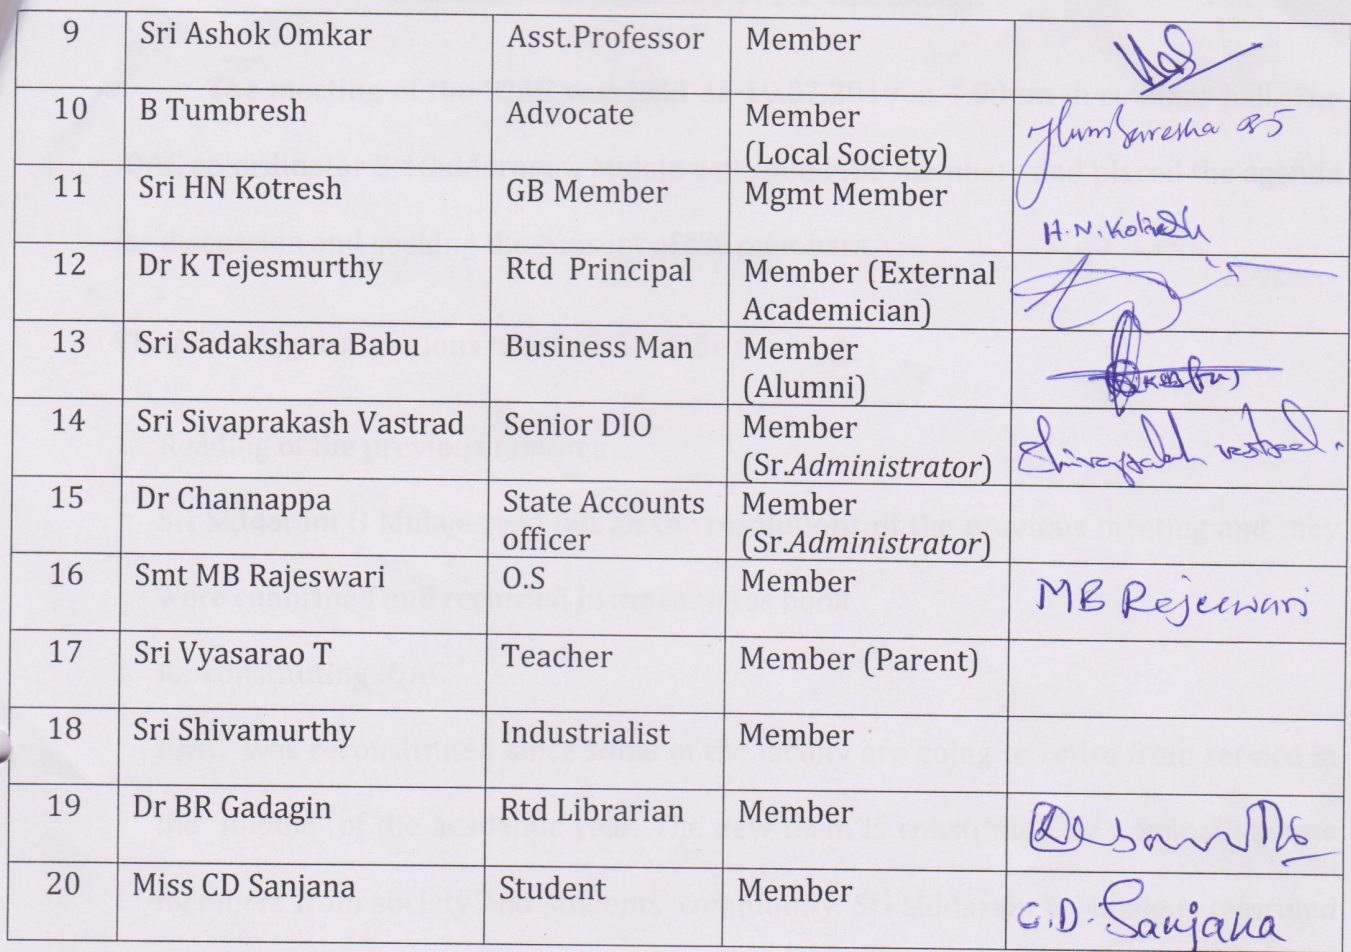 9 Sri Ashok Omkar Asst.Professor Member
10 B Tumbresh Advocate Member
(Local Society)
11 Sri HN Kotresh GB Member Mgmt Member
H.N. Kotresh
12 Dr K Tejesmurthy Rtd Principal Member (External
Academician)
13 Sri Sadakshara Babu Business Man Member
(Alumni)
14 Sri Sivaprakash Vastrad Senior DIO Member
(Sr.Administrator)
15 Dr Channappa State Accounts Member
officer (Sr.Administrator)
16 Smt MB Rajeswari O.S Member MB Rajeswari
17 Sri Vyasarao T Teacher Member (Parent)
18 Sri Shivamurthy Industrialist Member
19 Dr BR Gadagin Rtd Librarian Member
20 Miss CD Sanjana Student Member
C.D. Sanjana